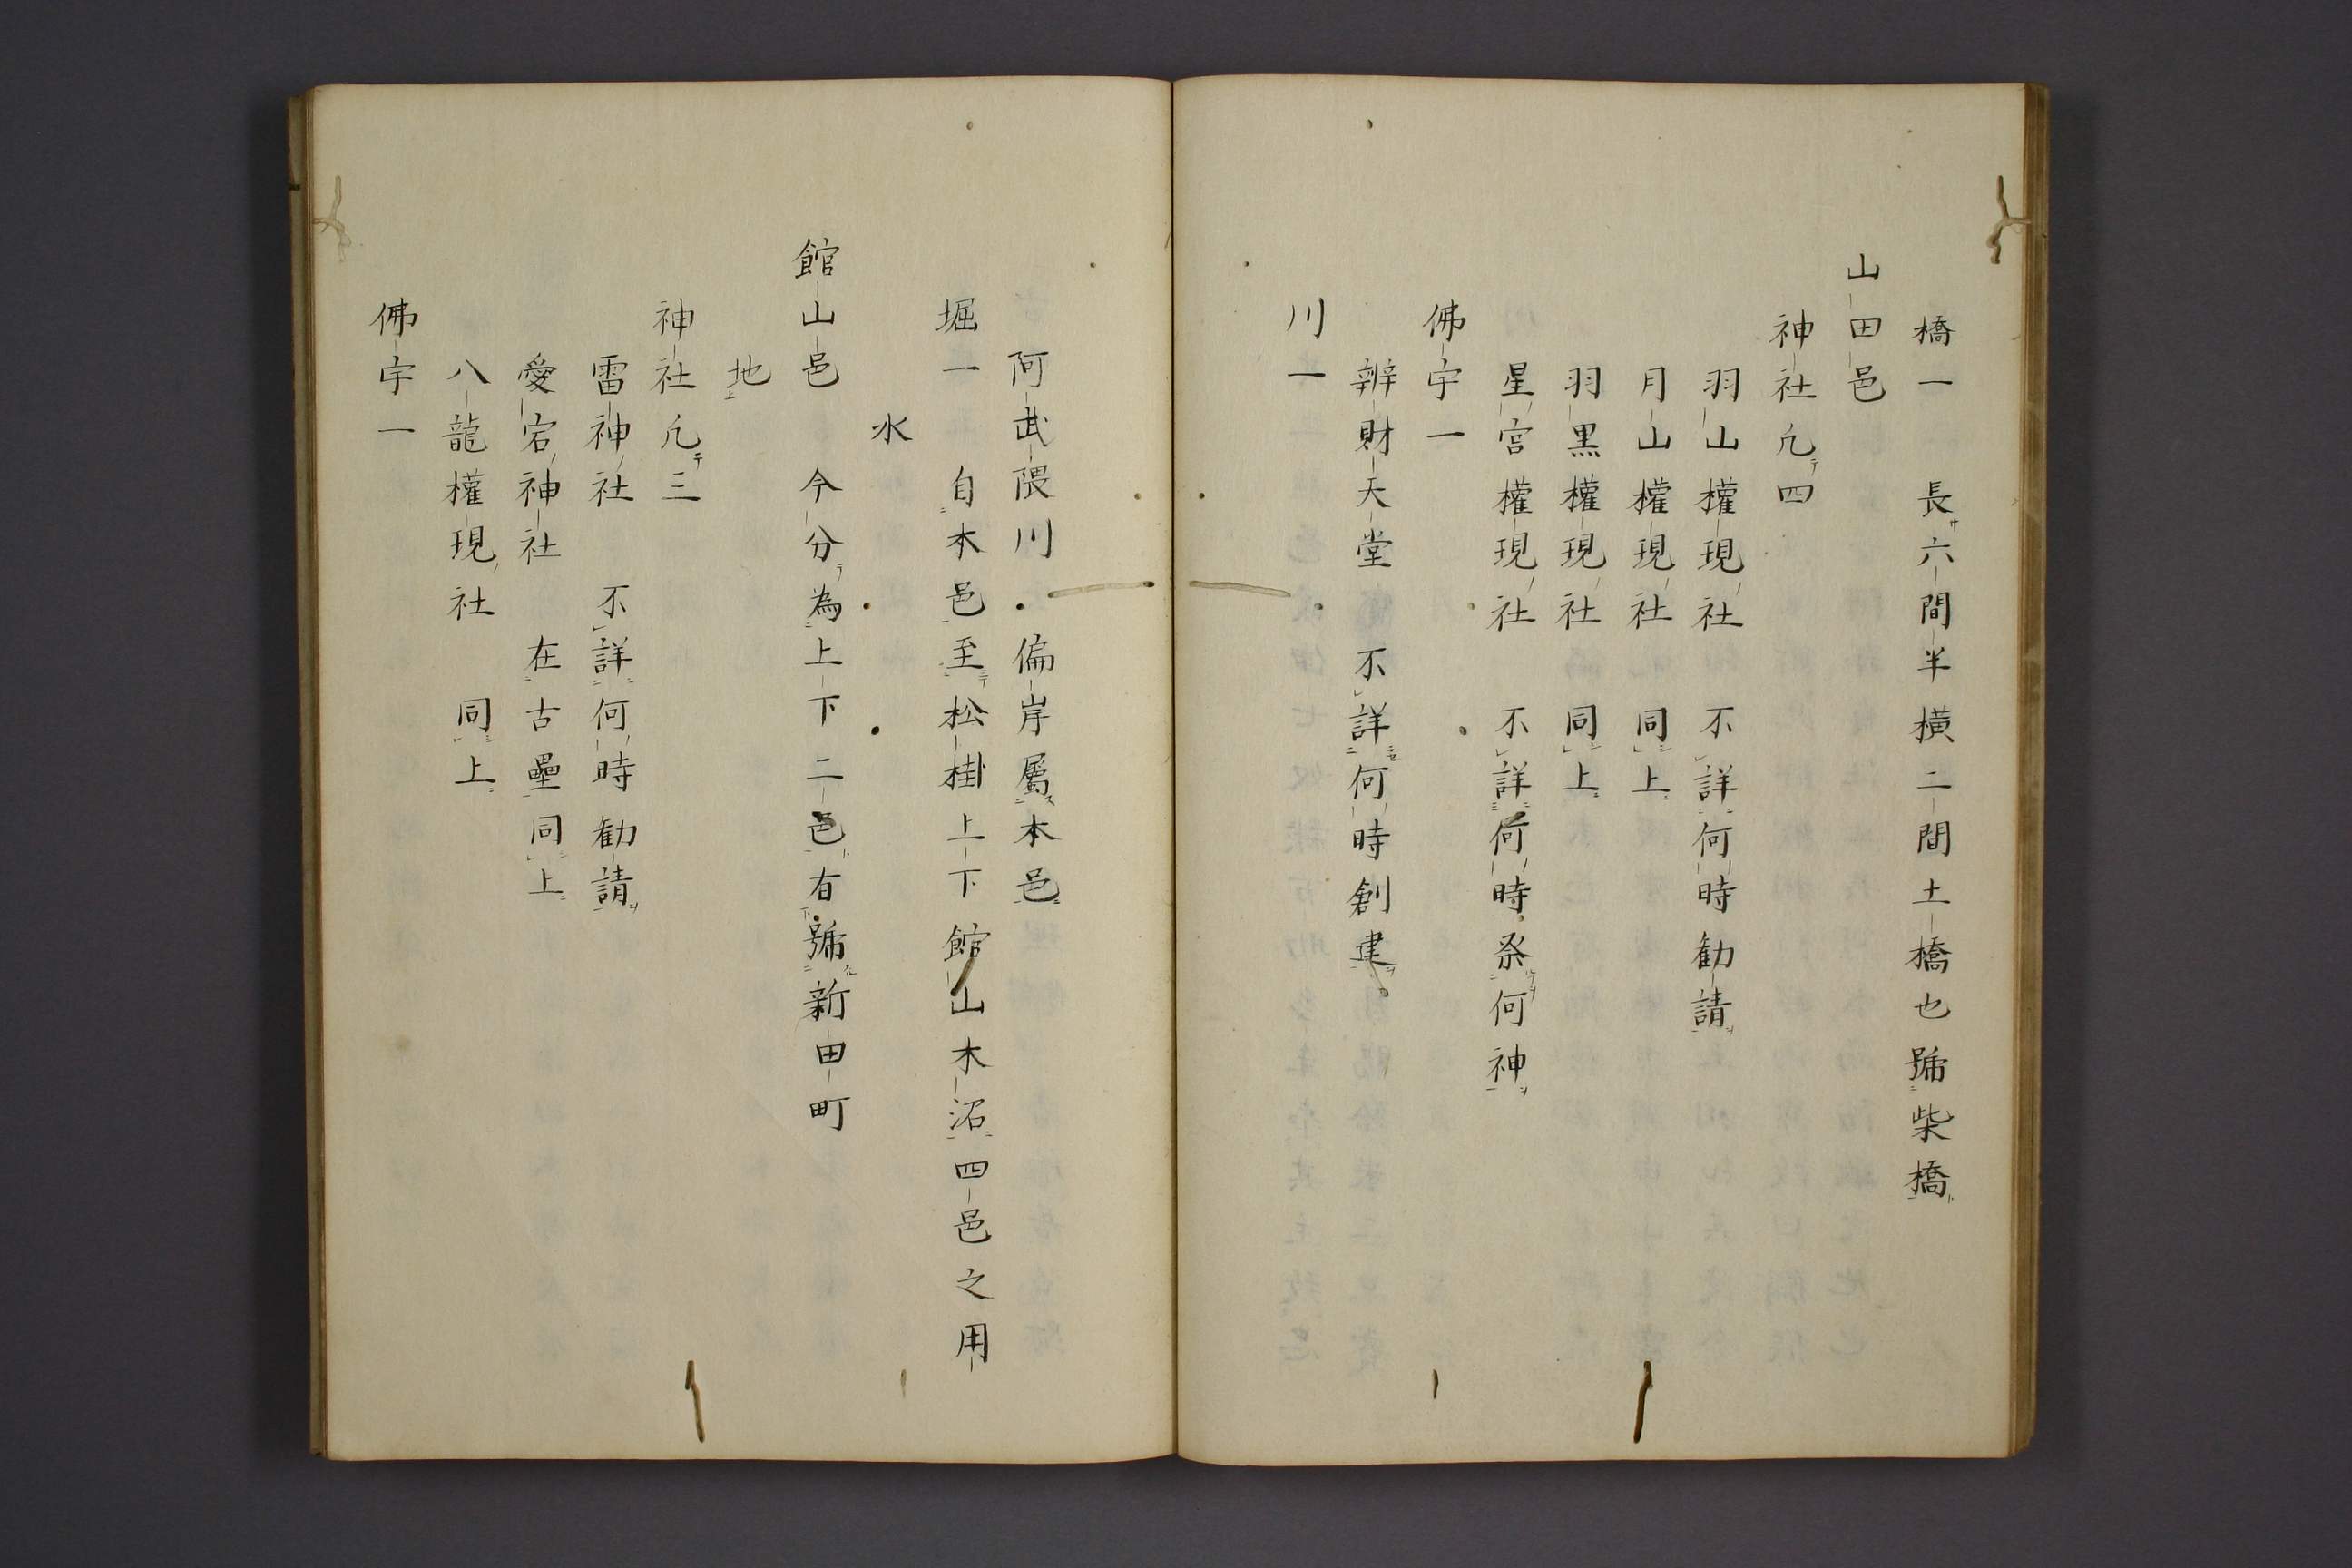 橋一　長六間半横二間土橋也號柴橋
山田邑
神社凢四
羽山權現社　不詳何時勧請
月山權現社　同上
羽黒權現社　同上
星宮權現社　不詳何時祭何神
佛宇一
辨財天堂　不詳何時創建
川一
阿武隈川　偏岸屬本邑
堀一　自本邑至松掛上下館山木沼四邑之用
水
館山邑　今分為上下二邑有號新田町
地
神社凢三
雷神社　不詳何時勧請
愛宕神社　在古壘同上
八龍權現社　同上
佛宇一